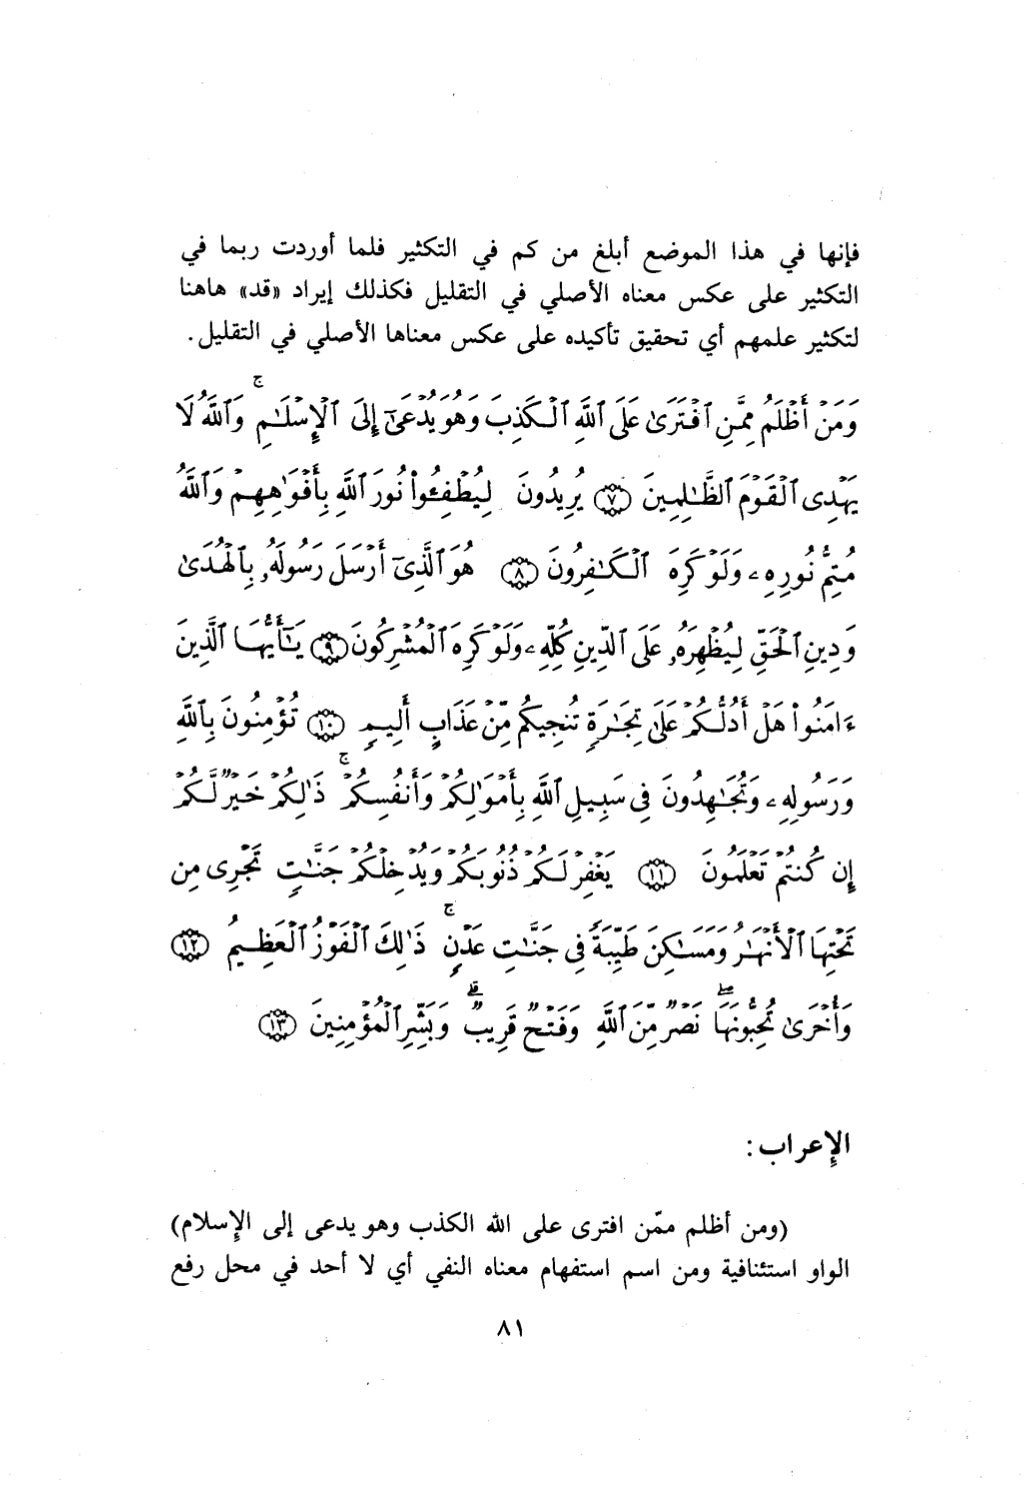 فإنها في هذا الموضع أبلغ من كم في التكثير فلما أوردت ربما في
التكثير على عكس معناه الأصلي في التقليل فكذلك إيراد «قد» هاهنا
لتكثير علمهم أي تحقيق تأكيده على عكس معناها الأصلي في التقليل.
وَمَنْ أَظْلَمُ مِمَّنِ ٱفْتَرَىٰ عَلَى ٱللَّهِ ٱلْكَذِبَ وَهُوَ يُدْعَىٰٓ إِلَى ٱلْإِسْلَٰمِ ۚ وَٱللَّهُ لَا
يَهْدِى ٱلْقَوْمَ ٱلظَّٰلِمِينَ ﴿٧﴾ يُرِيدُونَ لِيُطْفِـُٔوا۟ نُورَ ٱللَّهِ بِأَفْوَٰهِهِمْ وَٱللَّهُ
مُتِمُّ نُورِهِۦ وَلَوْ كَرِهَ ٱلْكَٰفِرُونَ ﴿٨﴾ هُوَ ٱلَّذِىٓ أَرْسَلَ رَسُولَهُۥ بِٱلْهُدَىٰ
وَدِينِ ٱلْحَقِّ لِيُظْهِرَهُۥ عَلَى ٱلدِّينِ كُلِّهِۦ وَلَوْ كَرِهَ ٱلْمُشْرِكُونَ ﴿٩﴾ يَٰٓأَيُّهَا ٱلَّذِينَ
ءَامَنُوا۟ هَلْ أَدُلُّكُمْ عَلَىٰ تِجَٰرَةٍ تُنجِيكُم مِّنْ عَذَابٍ أَلِيمٍ ﴿١٠﴾ تُؤْمِنُونَ بِٱللَّهِ
وَرَسُولِهِۦ وَتُجَٰهِدُونَ فِى سَبِيلِ ٱللَّهِ بِأَمْوَٰلِكُمْ وَأَنفُسِكُمْ ۚ ذَٰلِكُمْ خَيْرٌ لَّكُمْ
إِن كُنتُمْ تَعْلَمُونَ ﴿١١﴾ يَغْفِرْ لَكُمْ ذُنُوبَكُمْ وَيُدْخِلْكُمْ جَنَّٰتٍ تَجْرِى مِن
تَحْتِهَا ٱلْأَنْهَٰرُ وَمَسَٰكِنَ طَيِّبَةً فِى جَنَّٰتِ عَدْنٍ ۚ ذَٰلِكَ ٱلْفَوْزُ ٱلْعَظِيمُ ﴿١٢﴾
وَأُخْرَىٰ تُحِبُّونَهَا ۖ نَصْرٌ مِّنَ ٱللَّهِ وَفَتْحٌ قَرِيبٌ ۗ وَبَشِّرِ ٱلْمُؤْمِنِينَ ﴿١٣﴾
الإِعراب:
(ومن أظلم ممّن افترى على الله الكذب وهو يدعى إلى الإِسلام)
الواو استئنافية ومن اسم استفهام معناه النفي أي لا أحد في محل رفع
٨١